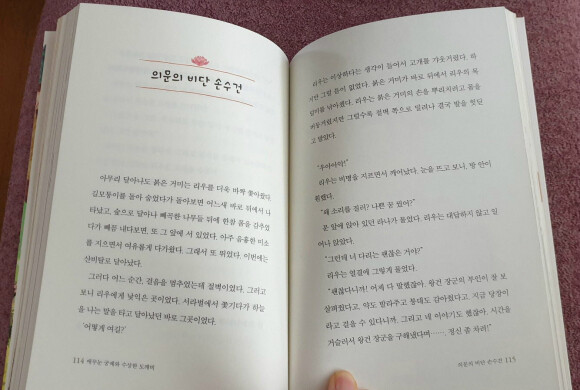 의문의 비단 손수건
아무리 달아나도 붉은 거미는 리우를 더욱 바짝 쫓아왔다.
길모퉁이를 돌아 숨었다가 돌아보면 어느새 바로 뒤에서 나
타났고, 숲으로 달아나 빼곡한 나무들 뒤에 한참 몸을 감추었
다가 빼꼼 내다보면, 또 그 앞에 서 있었다. 아주 음흉한 미소
를 지으면서 여유롭게 다가왔다. 그래서 또 뛰었다. 이번에는
산비탈로 달아났다.
그러다 어느 순간, 걸음을 멈추었는데 절벽이었다. 그리고
보니 리우에게 낯익은 곳이었다. 서라벌에서 쫓기다가 하늘
을 나는 말을 타고 달아났던 바로 그곳이었다.
'어떻게 여길?'
114
리우는 이상하다는 생각이 들어서 고개를 갸웃거렸다. 하
지만 그럴 틈이 없었다. 붉은 거미가 바로 뒤에서 리우의 목
덜미를 낚아챘다. 리우는 붉은 거미의 손을 뿌리치려고 몸을
버둥거렸지만 그럴수록 절벽 쪽으로 밀려나 결국 발을 헛딛
고 말았다.
"우아아악!"
리우는 비명을 지르면서 깨어났다. 눈을 뜨고 보니, 방 안이
훤했다.
"왜 소리를 질러? 나쁜 꿈 꿨어?"
문 앞에 앉아 있던 라나가 물었다. 리우는 대답하지 않고 일
어나 앉았다.
"그런데 너 다리는 괜찮은 거야?"
리우는 얼결에 그렇게 물었다.
"괜찮다니까! 어제 다 말했잖아. 왕건 장군의 부인이 잘 보
살펴줬다고. 약도 발라주고 붕대도 감아줬다고. 지금 당장이
라도 걸을 수 있다니까. 그리고 네 이야기도 했잖아. 시간을
거슬러서 왕건 장군을 구해냈다며……. 정신 좀 차려!"
의문의 비단 손수건 115